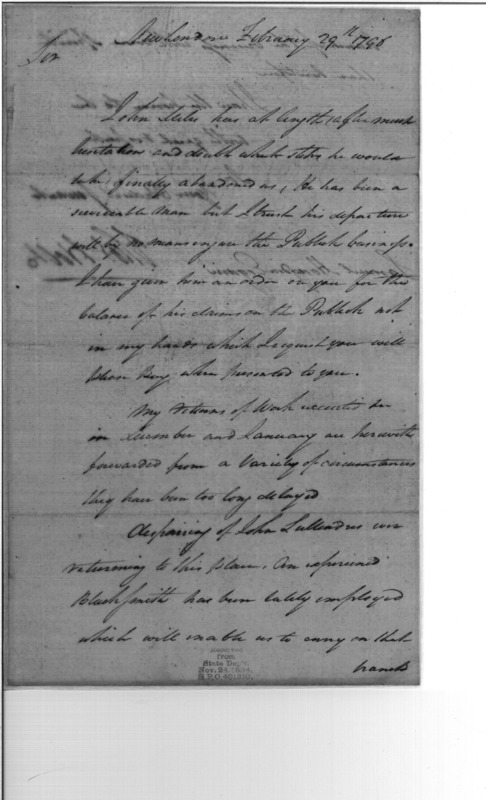 New London February 29th 1798
Sir
John Stiles has at length after much
hesitation and doubt which steps he would
take finally abandoned us, He has been a
serviceable man but I trust his departure
will by no means injure the Publick business.
I have given him an order on you for the
balance of his claims on the Publick not
in my hands which I request you will
please Pay when presented to you.
My returns of Work executed &c
in December and January are herewith
forwarded from a Variety of circumstances
they have been too long delayed
despairing of John ever
returning to this place. An experienced
Blacksmith has been lately employed
which will enable us to carry on that
branch
from
State Dept.
Nov. 24